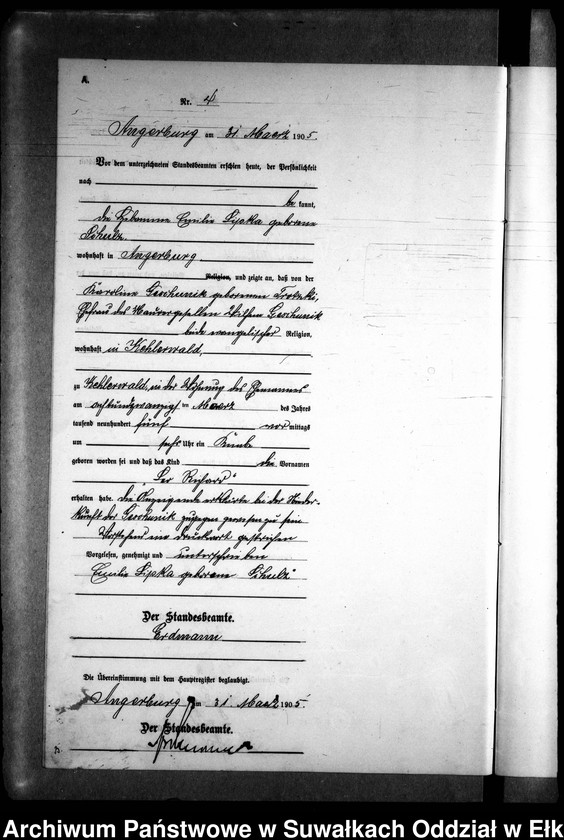 A.
Nr. 4
Angerburg am 31 Maerz 1905.
Vor dem unterzeichneten Standesbeamten erschien heute, der Persönlichkeit
nach
be kannt,
die Hebamme Emilie Lipka geborene
Schulz
wohnhaft in Angerburg
Religion, und zeigte an, daß von der
Karoline Geschunik geborenen
Ehefrau des Maurergesellen Wilhelm Geschunik
beide evangelischer Religion,
wohnhaft in Kehlerwald,
zu Kehlerwald, in der Wohnung des Ehemannes
am achtundzwanzigsten Maerz des Jahres
tausend neunhundert fünf vor mittags
um sechs Uhr ein Knabe
geboren worden sei und daß das Kind die Vornamen
„Leo Richard“
erhalten habe. Die Anzeigende erklärte bei der Nieder-
kunft der Geschunik zugegen gewesen zu sein
Vorstehend ein Druckwort gestrichen
Vorgelesen, genehmigt und unterschrieben
Emilie Lipka geborene Schulz
Der Standesbeamte.
Erdmann
Die Übereinstimmung mit dem Hauptregister beglaubigt.
Angerburg am 31 Maerz 1905
Der Standesbeamte.
Erdmann
Archiwum Państwowe w Suwałkach Oddział w Ełk